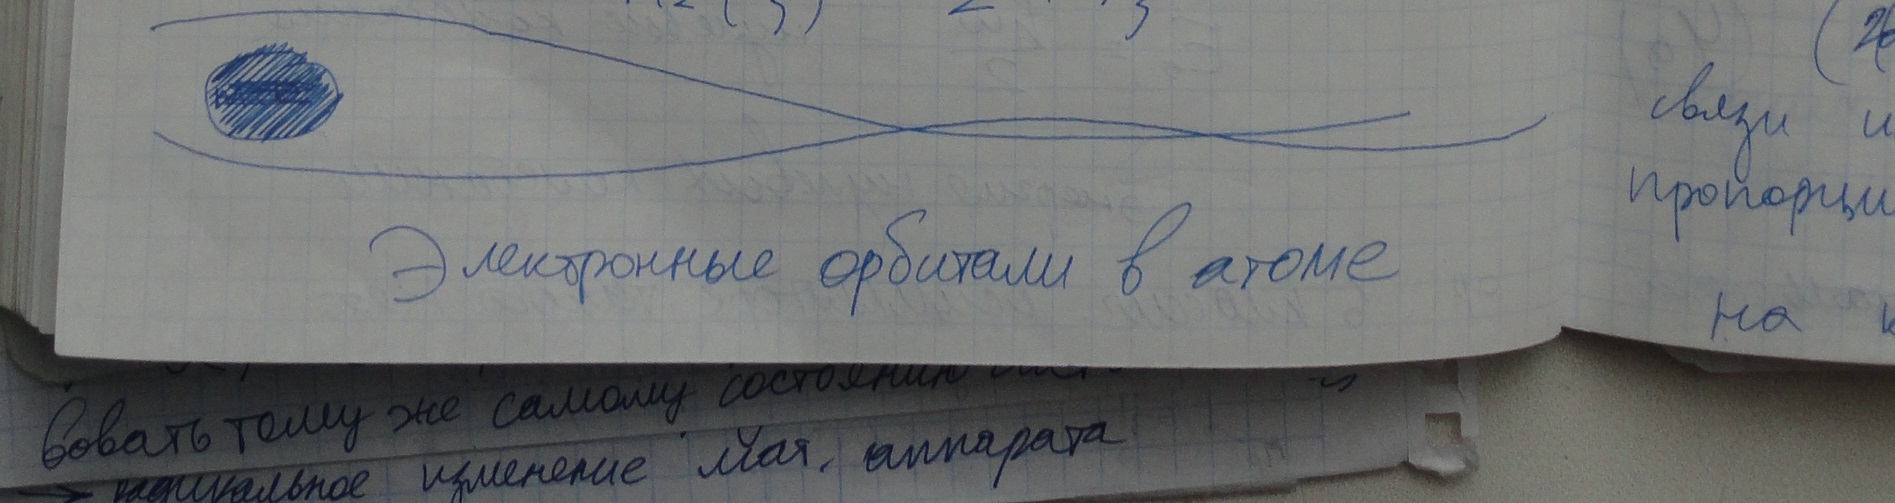 Электронные орбитали в атоме
связи и
пропорци
на к
вовать тому же самому состоянию
радикальное изменение мат. аппарата